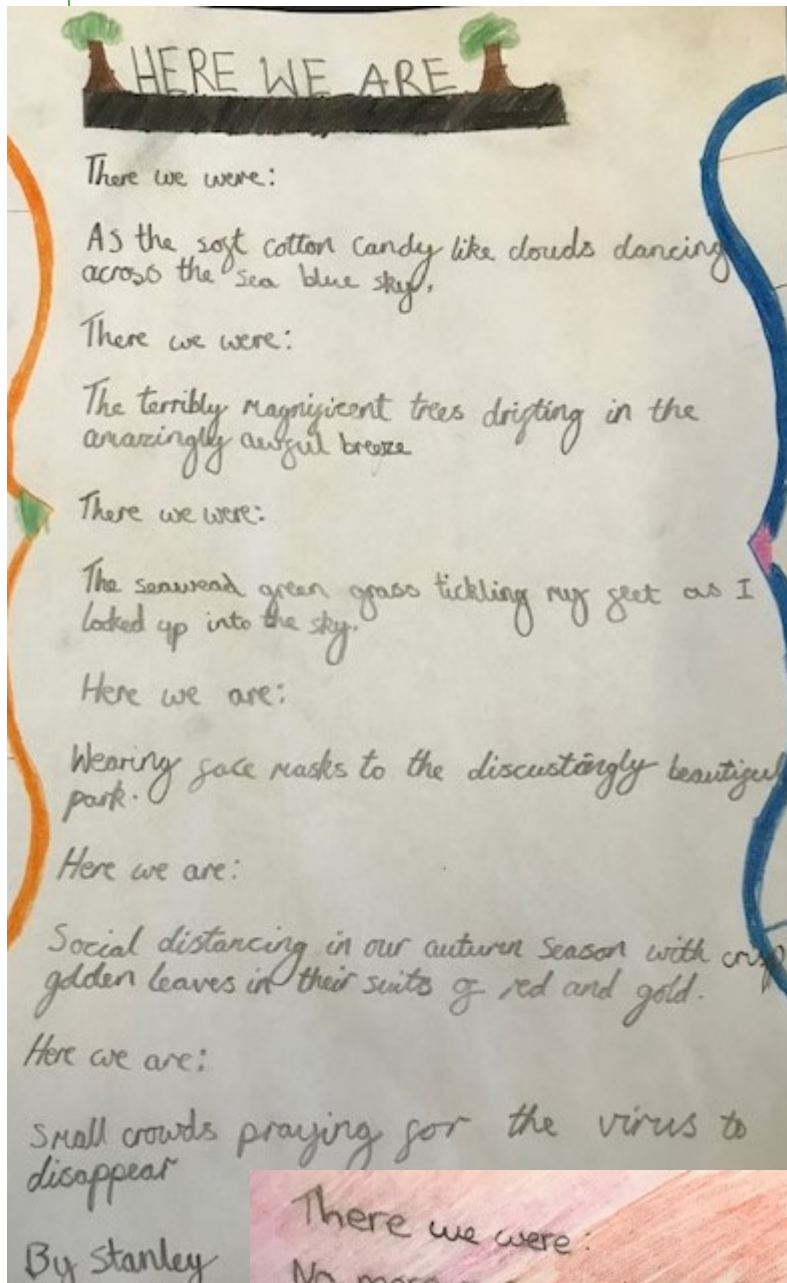 HERE WE ARE
There we were:
As the soft cotton candy like clouds dancing
across the sea blue sky.
There we were:
The terribly magnificent trees drifting in the
amazingly awful breeze
There we were:
The seawead green grass tickling my feet as I
looked up into the sky.
Here we are:
Wearing face masks to the discustingly beautiful
park.
Here we are:
Social distancing in our autumn season with crisp
golden leaves in their suits of red and gold.
Here we are:
Small crowds praying for the virus to
disappear
By Stanley
There we were:
No more